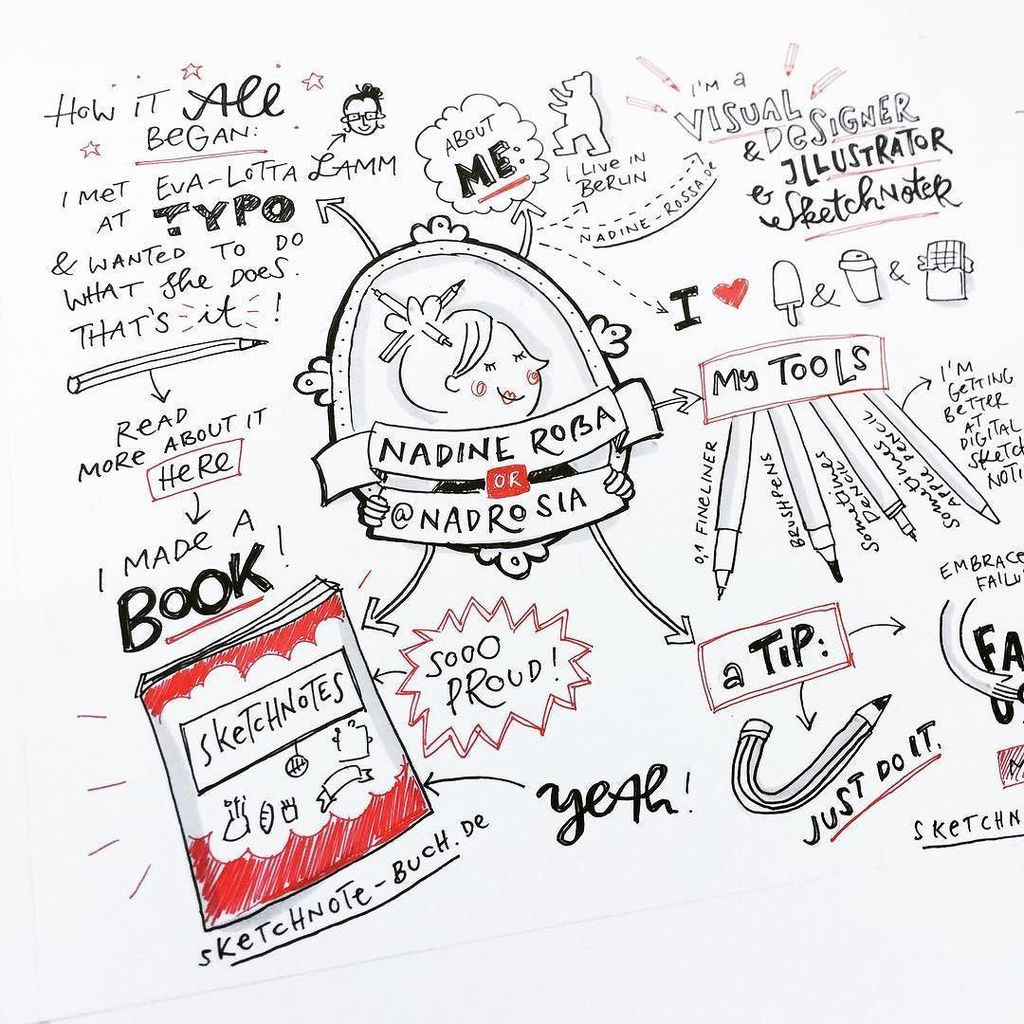 HOW IT ALL
BEGAN:
I MET EVA-LOTTA LAMM
AT TYPO
& WANTED TO DO
WHAT SHE DOES.
THAT'S it!
READ
MORE ABOUT IT
HERE
I MADE A
BOOK!
SKETCHNOTES
SKETCHNOTE-BUCH.DE
SOOO
PROUD!
YEAH!
ABOUT
ME:
I LIVE IN
BERLIN
NADINE-ROSSA.DE
I'M A
VISUAL
DESIGNER
& ILLUSTRATOR
& SKETCHNOTER
I ♥ & &
NADINE ROßA
OR
@NADROSIA
MY TOOLS
0,1 FINELINER
BRUSHPENS
SOMETIMES
PENCILS
SOMETIMES
APPLE PENCIL
I'M
GETTING
BETTER
AT
DIGITAL
SKETCH
NOTI
a TIP:
JUST DO IT.
EMBRACE
FAILU
FA
SKETCHN